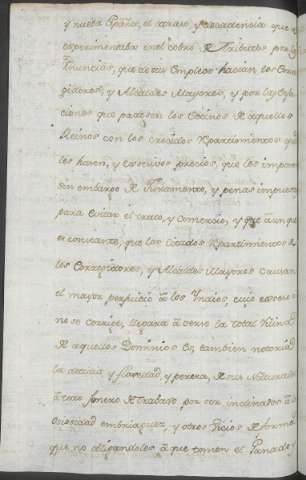 y nueba España, el atraso, y decadencia que
experimentaba en el cobro de tributos por las
denuncias, que de sus Empleos hacian los Corre
gidores, y Alcaldes Mayores, y por las
ciones que padecian los Vecinos de aquellos
Reinos con los crecidos Repartimientos que
les hacen, y excesivos precios, que les imponen
sin embargo de Juramento, y penas impuestas
para evitar el trato, y comercio, y que aunque
es constante, que los citados Repartimientos de
los Corregidores, y Alcaldes Mayores causan
el mayor perjuicio à los Yndios, cuio exceso si
no se corrije, llegara à serve la total Ruina
de aquellos Dominios Es tambien notoria
la desidia y flogedad, y pereza, de sus Naturales
à todo genero de trabajo por ser inclinados à la
Ociosidad embriaguez, y otros Vicios de forma
que no obligandoles à que tomen el Ganado